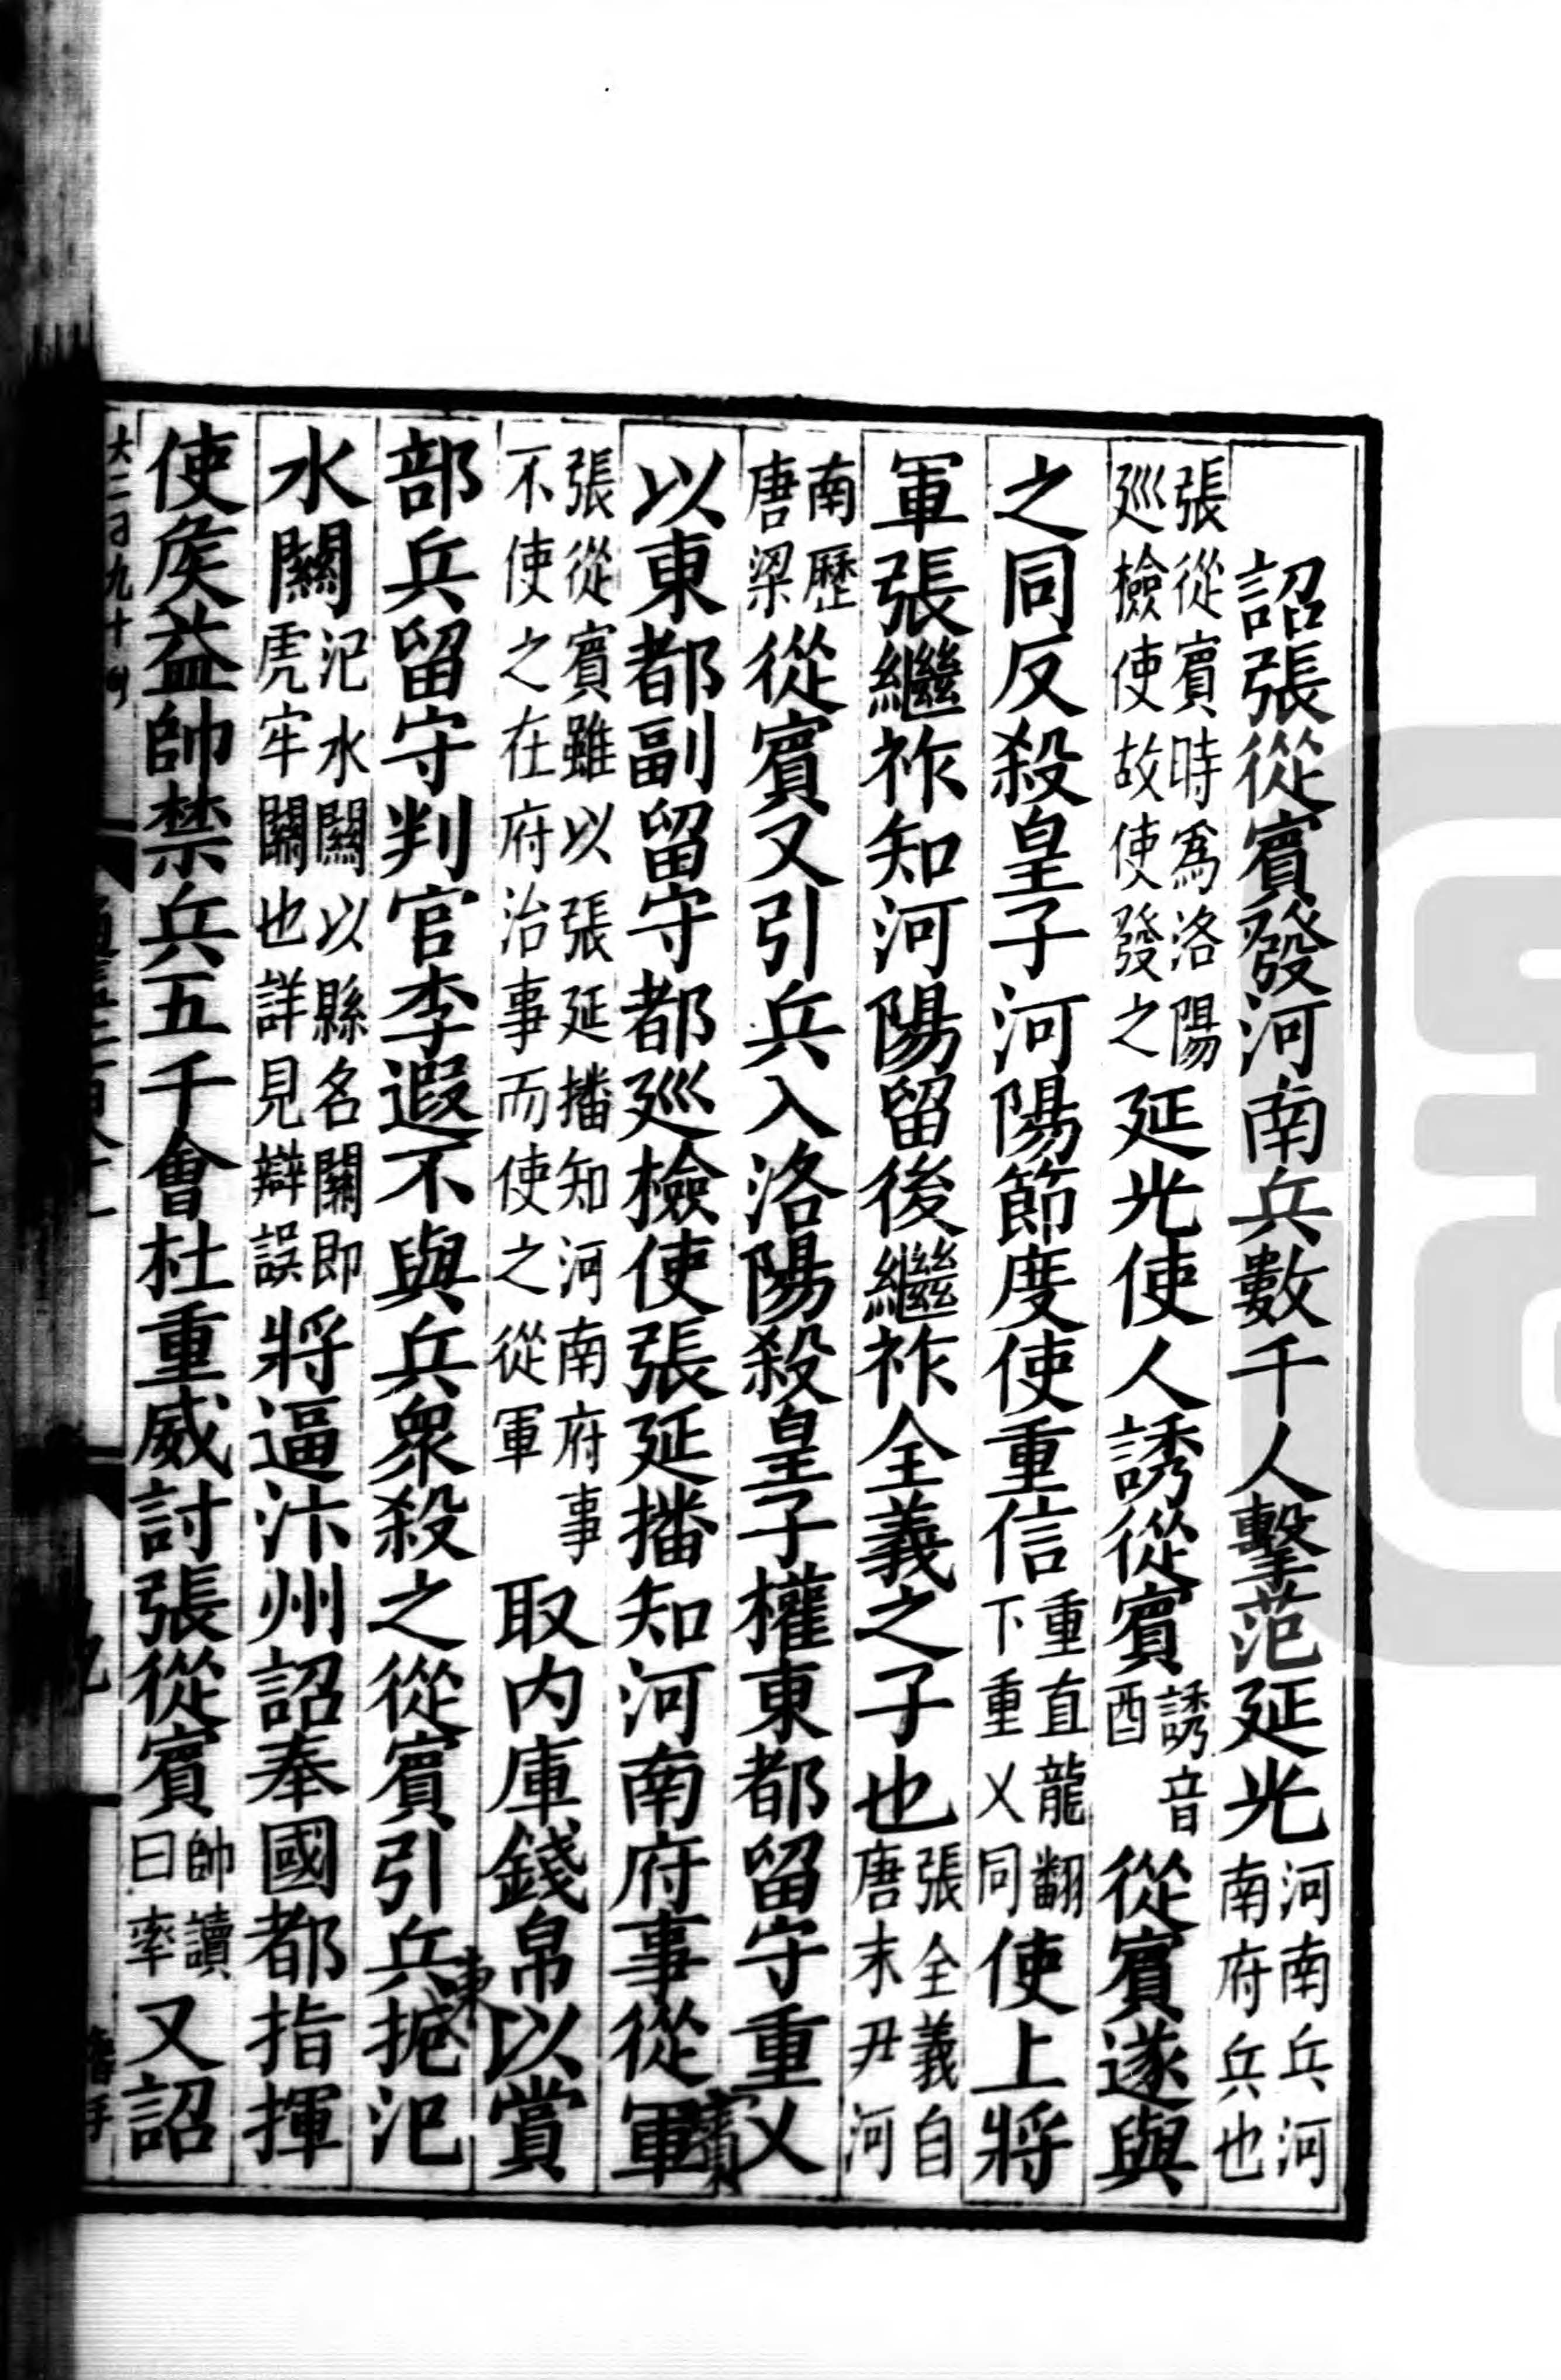 詔張從賓發河南兵數千人擊范延光河南兵河南府兵也
張從賓時爲洛陽廵檢使故使發之延光使人誘從賓誘音酉從賓遂與
之同反殺皇子河陽節度使重信重直龍翻下重乂同使上將
軍張繼祚知河陽留後繼祚全義之子也張全義自唐末尹河
南歷唐梁從賓又引兵入洛陽殺皇子權東都留守重乂
以東都副留守都廵檢使張延播知河南府事從軍
張從賓雖以張延播知河南府事不使之在府治事而使之從軍取内庫錢帛以賞
部兵留守判官李遐不與兵衆殺之從賓引兵扼汜
水關汜水關以縣名關即虎牢關也詳見辯誤將逼汴州詔奉國都指揮
使矦益帥禁兵五千會杜重威討張從賓帥讀曰率又詔